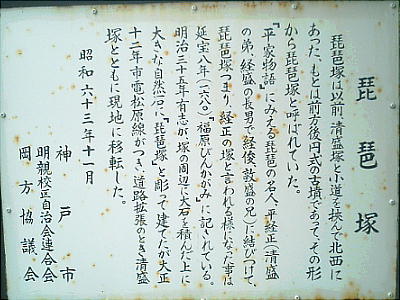 琵琶塚
琵琶塚は以前、清盛塚と小道を挟んで北西に
あつた、もとは前方後円式の古墳であって、その形
から琵琶塚と呼ばれていた。
『平家物語』にみえる琵琶の名人、平経正（清盛
の弟、経盛の長男で経俊、敦盛の兄）に結びつけて、
琵琶塚つまり、経正の塚と言われる様になった事は
延宝八年（一六八〇）福原びんかがみ』に記されている。
明治三十五年有志が、塚の周辺に大石を積んだ上に
大きな自然石に『琵琶塚』と彫って建てたが大正
十二年市電松原線がつき、道路拡張のとき清盛
塚とともに現地に移転した。
昭和六十三年十一月
神戸市
明親校区自治会連合会
岡方協議会